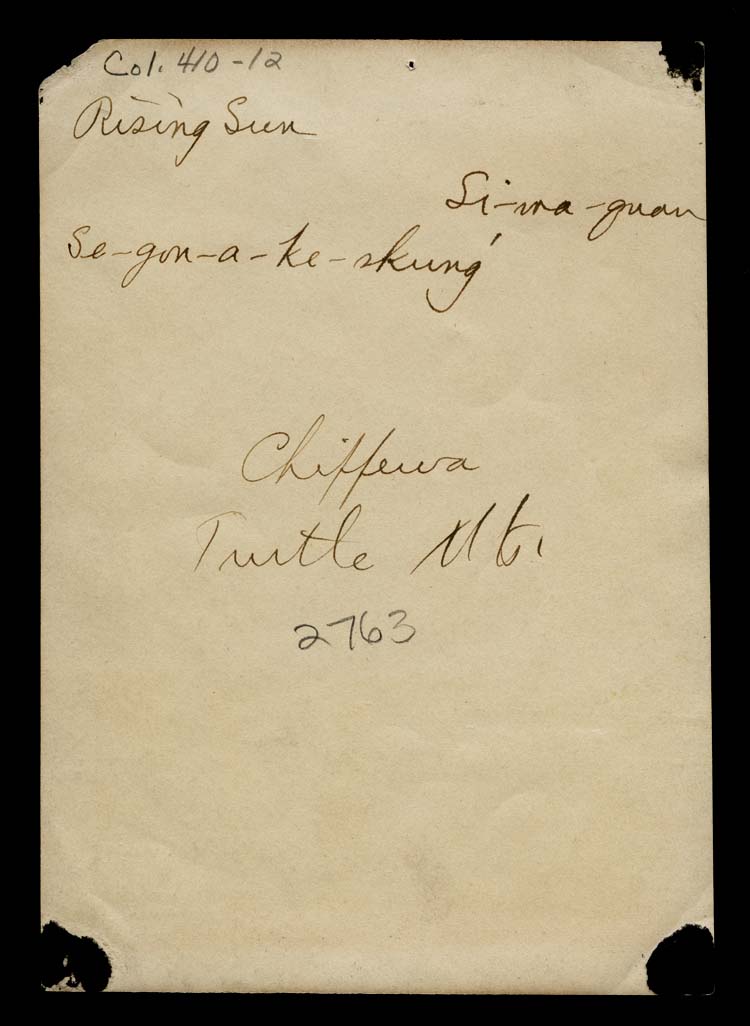 Col. 410-12
Rising Sun
Si-wa-quan
Se-gon-a-ke-skung'
Chippewa
Turtle Mt.
2763